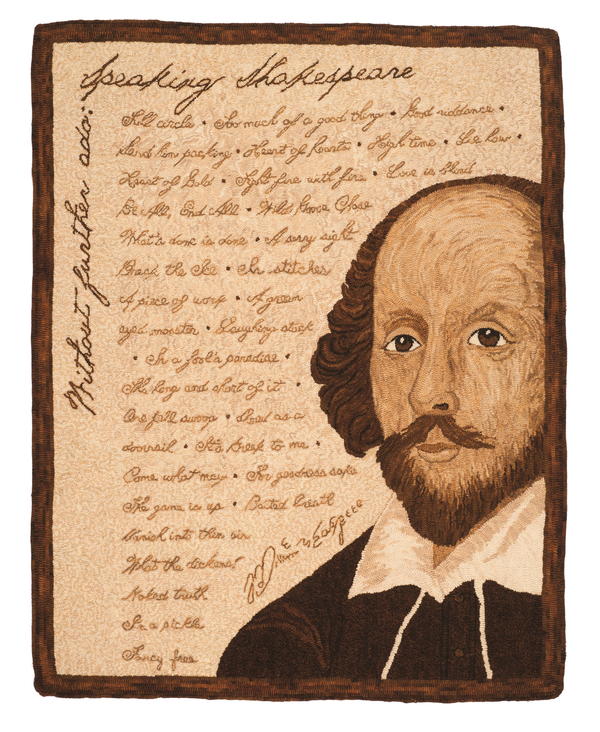 Speaking Shakespeare
Without further ado:
Full circle • Too much of a good thing • Good riddance •
Send him packing • Heart of Hearts • High time • Lie low •
Heart of Gold • Fight fire with fire • Love is blind
Be All, End All • Wild Goose Chase
What's done is done • A sorry sight
Break the Ice • In stitches
A piece of work • A green
eyed monster • Laughing stock
• In a fool's paradise •
The long and short of it •
One fell swoop • Dead as a
doornail • It's Greek to me •
Come what may • For goodness sake
The game is up • Baited breath
Vanish into thin air
What the dickens!
Naked truth
In a pickle
Fancy free